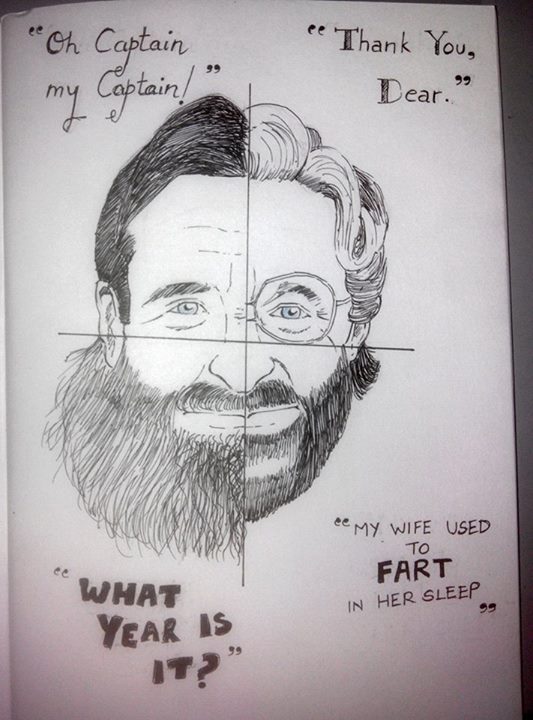 "Oh Captain
my Captain!"
"Thank You,
Dear."
"WHAT
YEAR IS
IT?"
"MY WIFE USED
TO
FART
IN HER SLEEP"